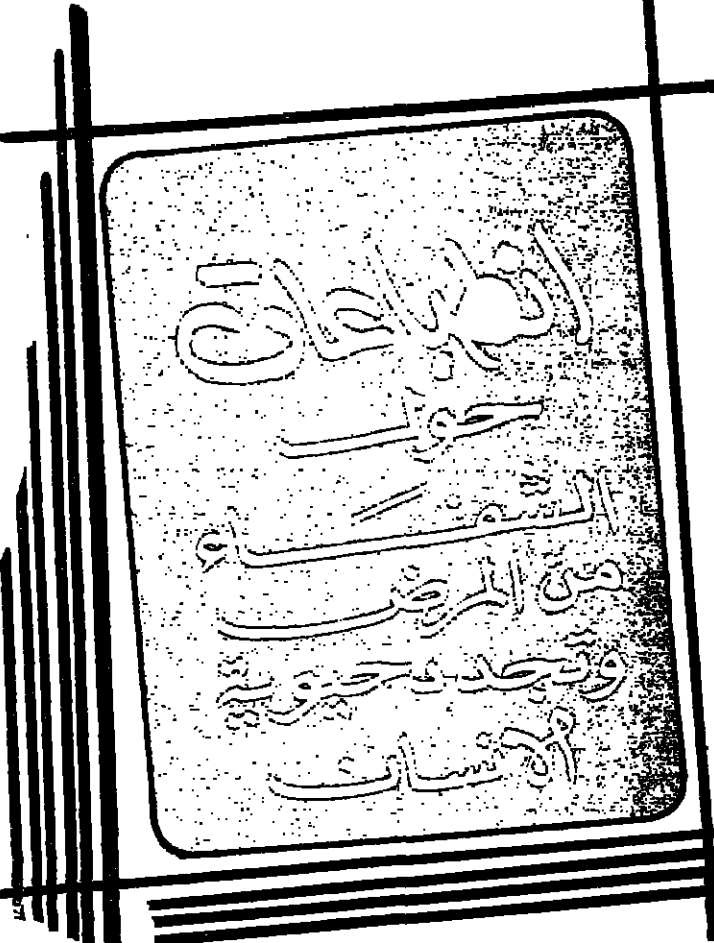 انطباعات
حول
الشفاء
من المرض
وتجدد حيوية
الانسان